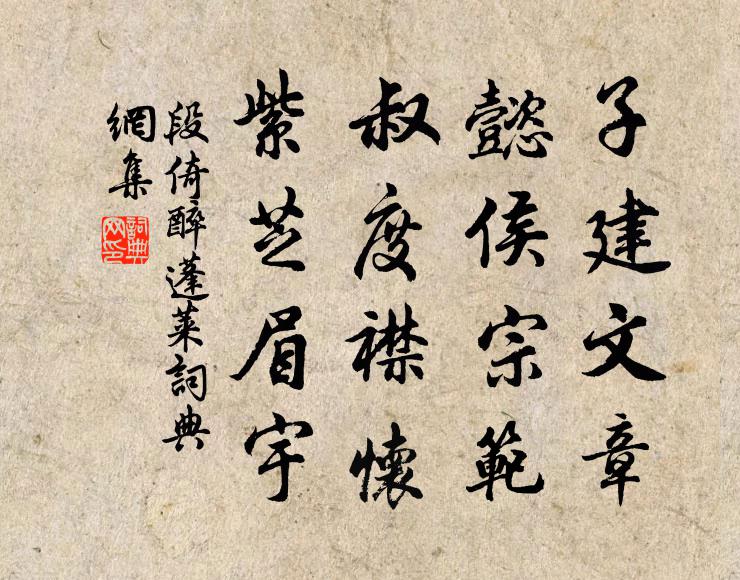 子建文章
懿侯宗範
叔度襟懷
紫芝眉宇
段倚醉蓬萊詞典
網集
詞典
网印